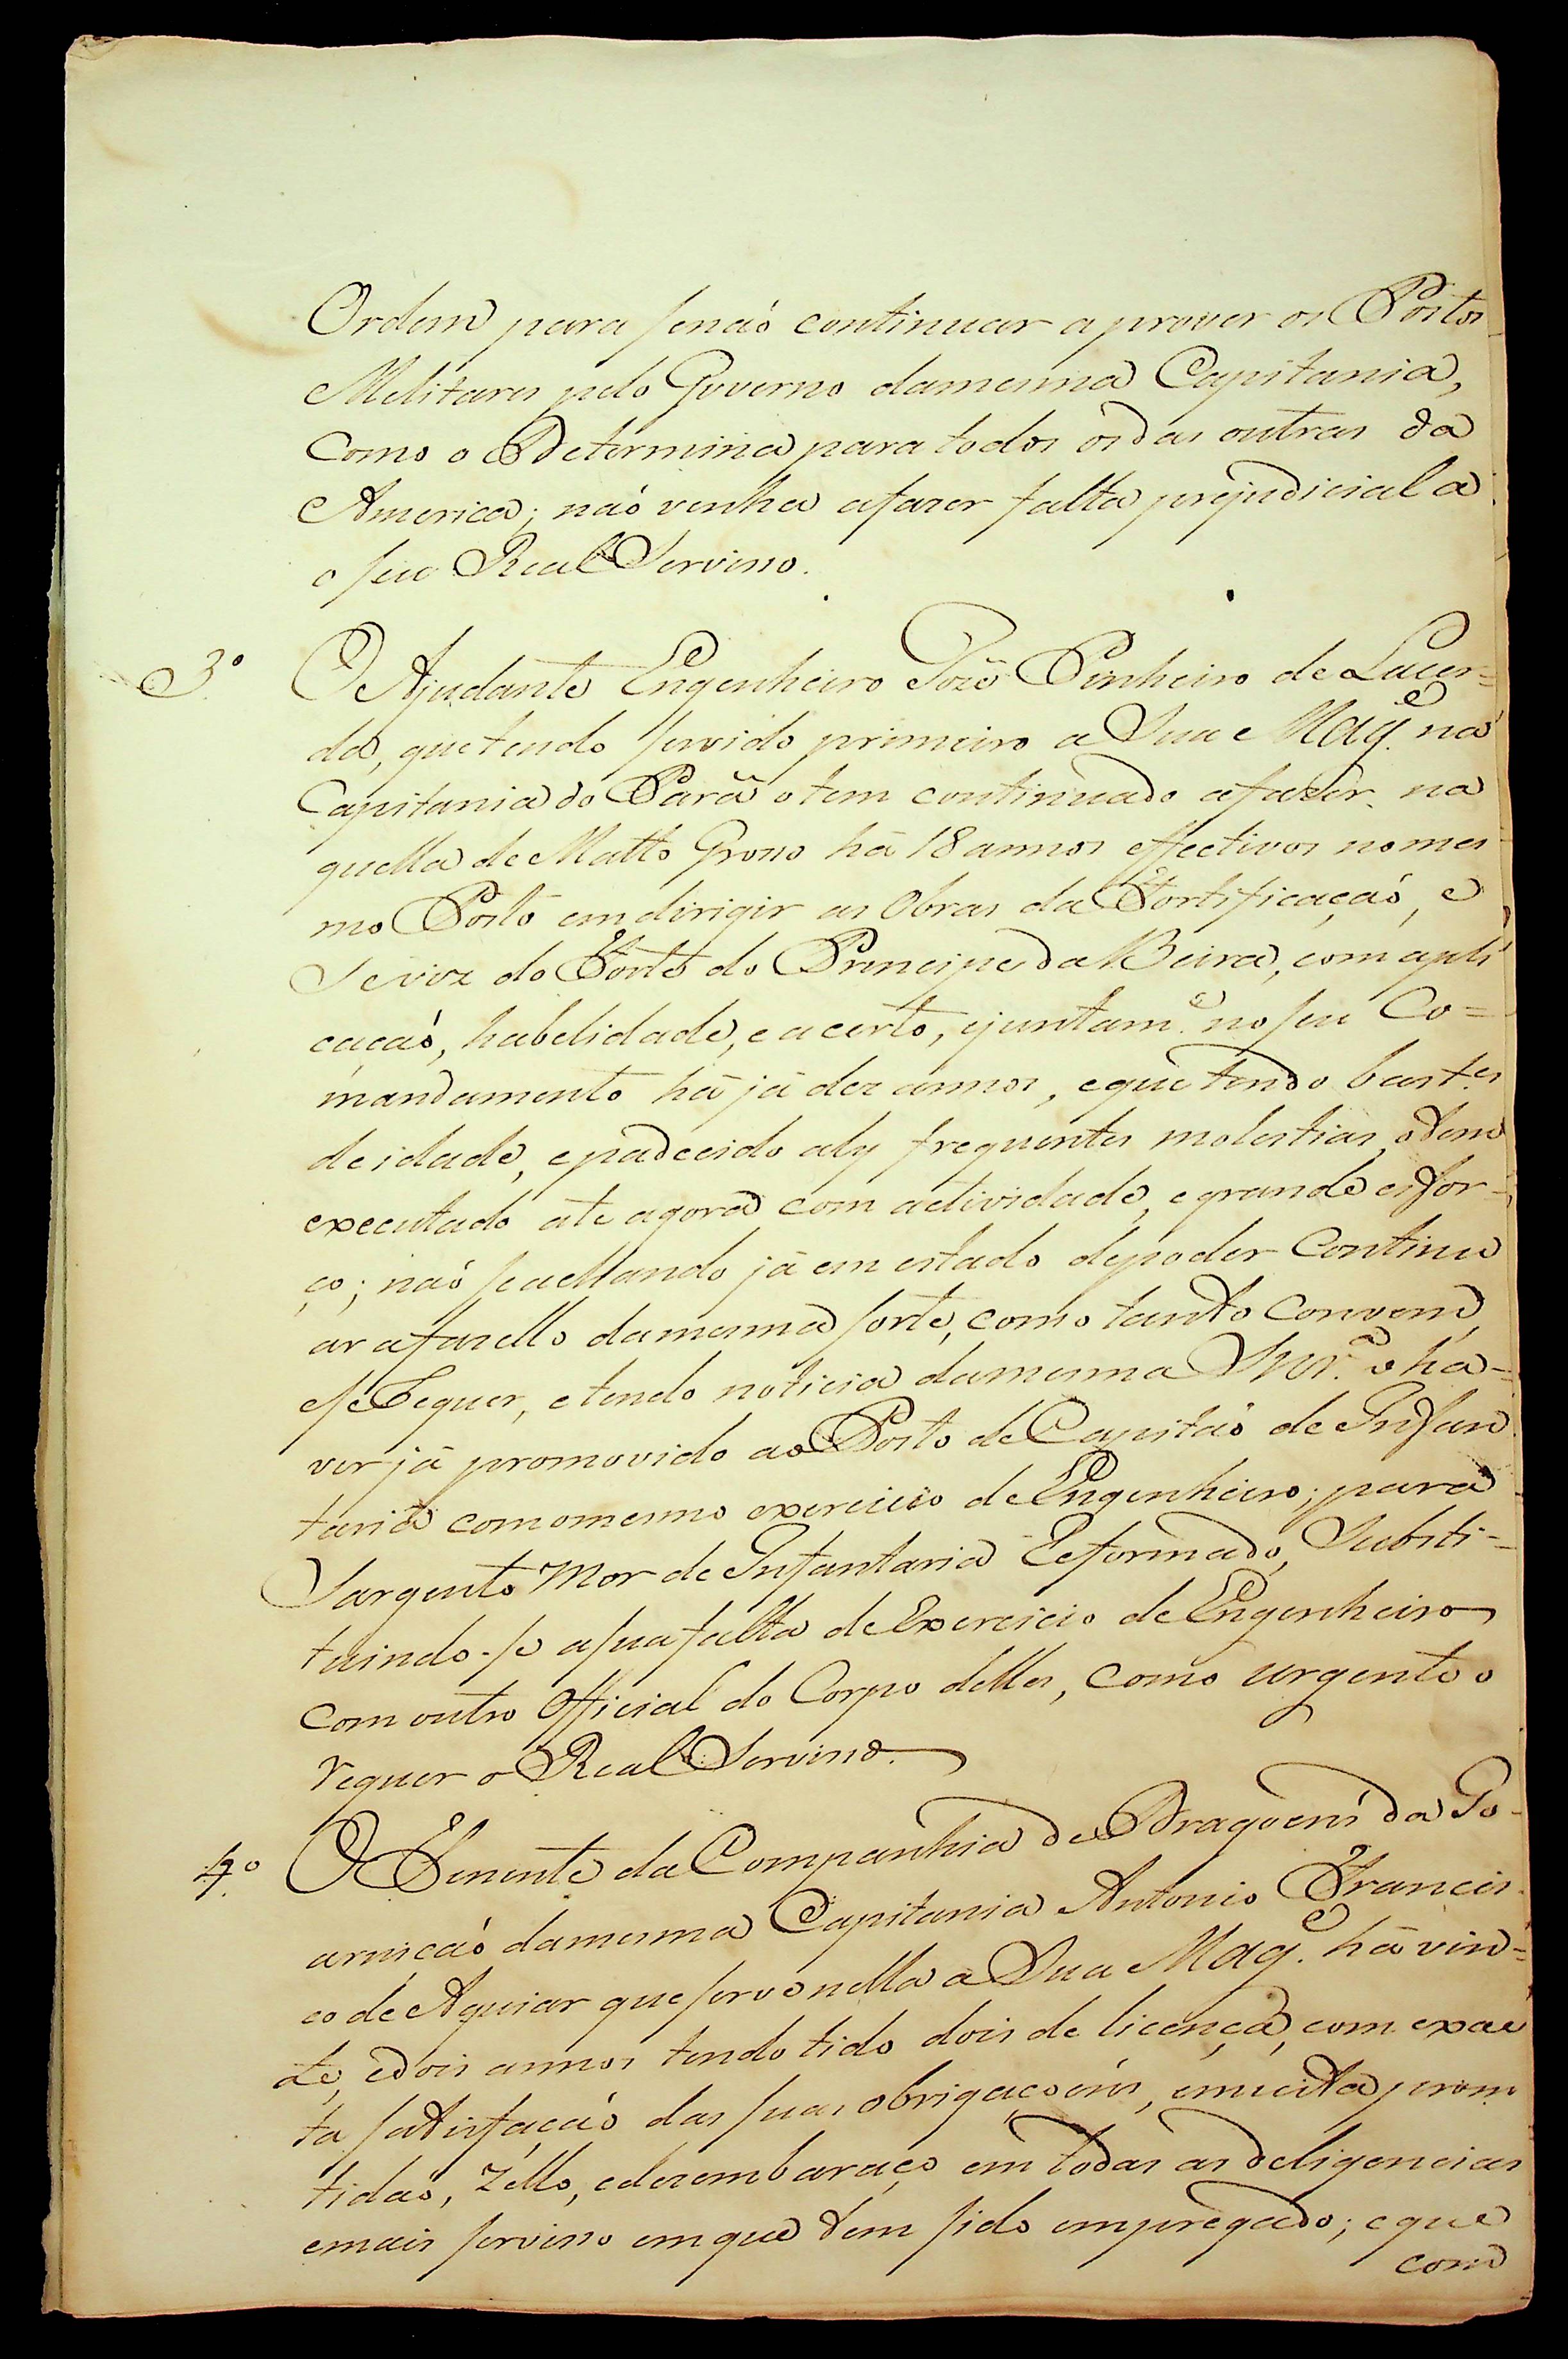 Ordem para senaó continuar a prover os Postos
Melitares pelo Governo damesma Capitania,
Como o Determina para todos os das outras da
America; naó venha afazer falta prejudicial a
o seu Real Servisso.
3º O Ajudante Engenheiro Jozé Pinheiro de Lacer-
da, que tendo servido primeiro a Sua Mag.e na
Capitania do Pará o tem continuado afazer na
quella de Matto Grosso há 18 annos effectivos no mes
mo Posto em dirigir as Obras da Fortificaçaó, e
Serviz do Forte do Principe da Beira, com apli
caçaó, habelidade, e acerto, ejuntam.e no seu Co=
mandamento há já dez annos, eque tendo bast.es
de idade, epadecido aly frequentes molestias, otem
executado ate agora com actividade, egrande esfor-
ço; naó seachando já em estado depoder Continu
ar afazello damesma sorte, como tanto Convem,
ese Requer, etendo noticia damesma Snr.a o ha=
ver já promovido ao Posto de Capitaó de Infan
taria comomesmo exercicio de Engenheiro; para
Sargento Mor de Infantaria Reformado, Substi-
tuindo-se asuafalta de Exercicio de Engenheiro
com outro Official do Corpo delles, como urgente o
requer o Real Servisso.
4º O Tenente da Companhia de Dragoens da Go-
arniçaó damesma Capitania Antonio Francis
co de Aguiar que serve nella a Sua Mag.e há vin=
te, edois annos tendo tido dois de licença, com exac
ta satisfaçaó das suas obrigaçoens, emuita prom
tidaó, Zello, edezembaraço em todas as deligencias
emais servisso em que tem sido empregado; eque
com